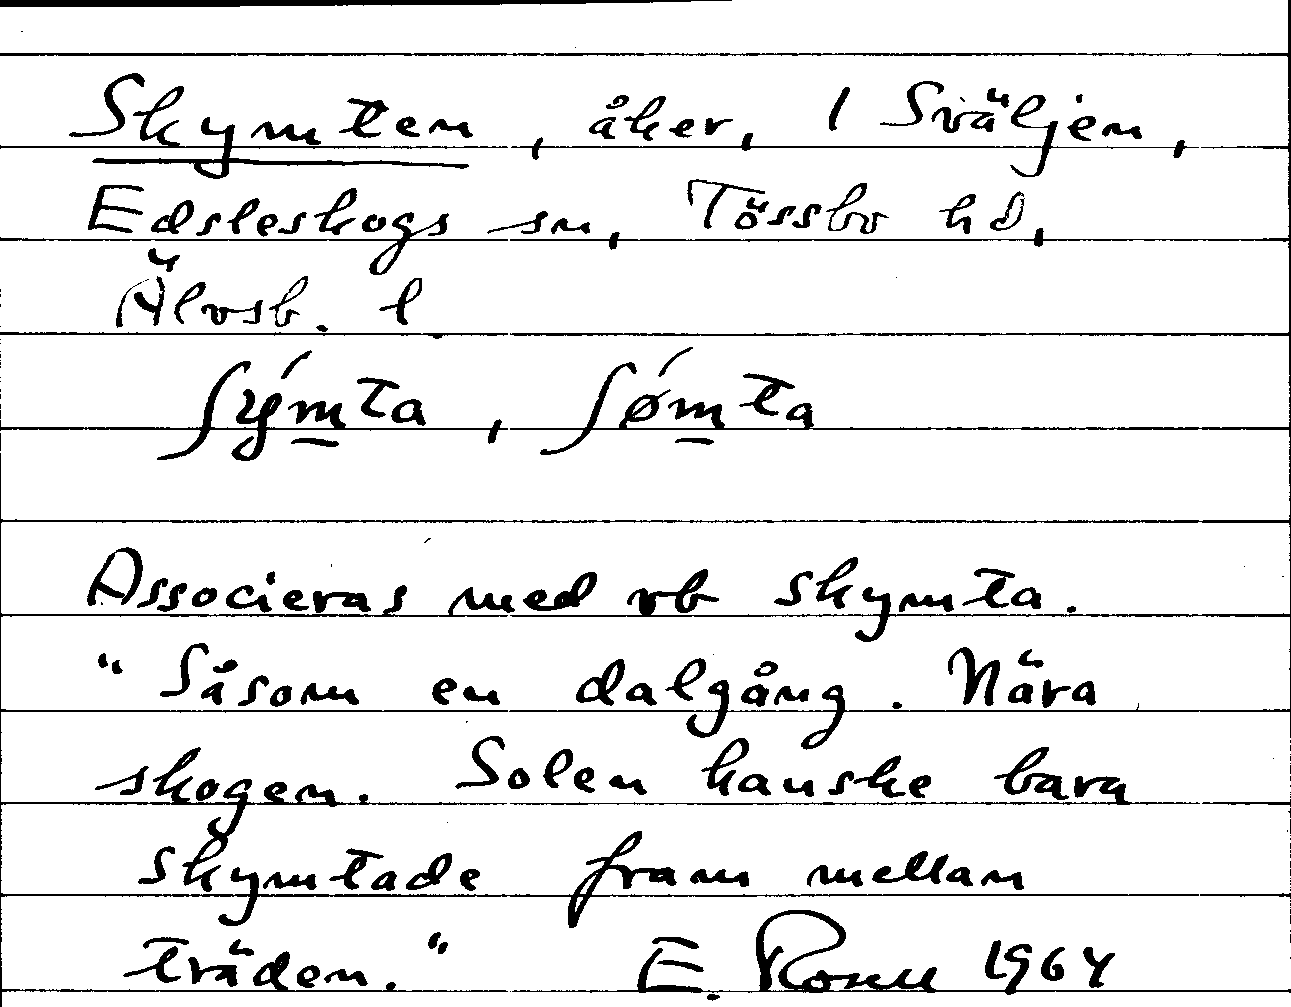 Skymten, åker, 1 Sväljen,
Edsleskogs sn, Tössbo hd,
Älvsb. l
ʃým̲ta, ʃǿm̲ta
Associeras med vb skymta.
"Såsom en dalgång. Nära
skogen. Solen kanske bara
skymtade fram mellan
träden." E. 1964